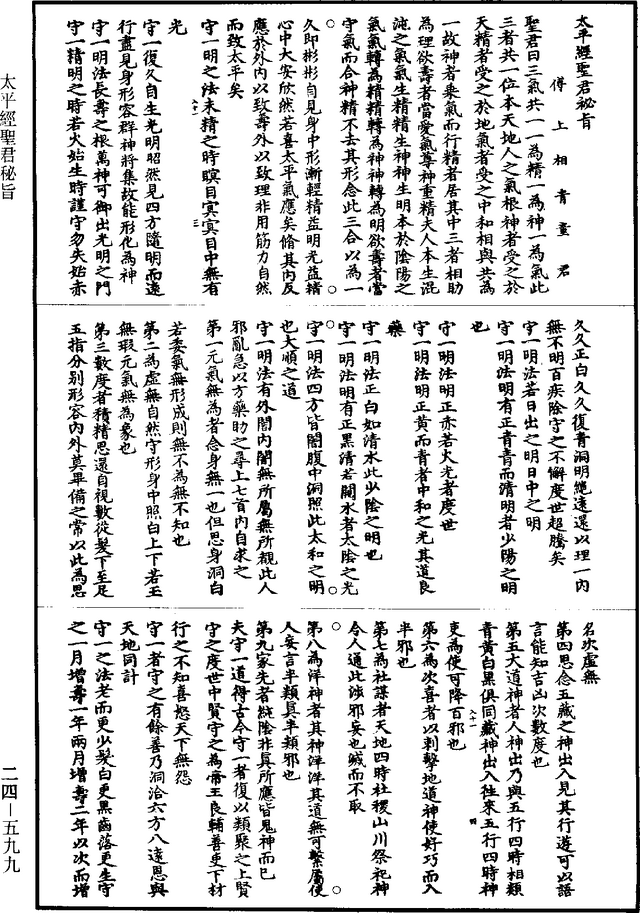 太平經聖君秘旨
傅上相青童君
聖君曰三氣共一一為精一為神一為氣此
三者共一位本天地人之氣根神者受之於
天精者受之於地氣者受之中和相與共為
一故神者乘氣而行精者居其中三者相助
為理欲壽者當愛氣尊神重精夫人本生混
沌之氣氣生精精生神神生明本於陰陽之
氣氣轉為精精轉為神神轉為明欲壽者當
守氣而合神精不去其形念此三合以為一
久即彬彬自見身中形漸輕精益明光益精
心中大安欣然若喜太平氣應矣脩其內反
應於外內以致壽外以致理非用筋力自然
而致太平矣
守一明之法未精之時瞑目冥冥目中無有
光
守一復久自生光明昭然見四方隨明而遠
行盡見身形容群神將集故能形化為神
守一明法長壽之根萬神可御出光明之門
守一精明之時若火始生時謹守勿失始赤
久久正白久久復青洞明絕遠還以理一內
無不明百疾除守之不懈度世超騰矣
守一明法若日出之明日中之明
守一明法明有正青青而清明者少陽之明
也
守一明法明正赤若火光者度世
守一明法明正黃而青者中和之光其道良
藥
守一明法正白如清水此少陰之明也
守一明法明有正黑清若闚水者太陰之光
守一明法四方皆闇腹中洞照此太和之明
也大順之道
守一明法有外闇內闇無所屬無所覩此人
邪亂急以方藥助之尋上七首內自求之
第一元氣無為者念身無一也但思身洞白
若委氣無形成則無不為無不知也
第二為虛無自然守形身中照白上下若玉
無瑕元氣無為象也
第三數度者積精思還自視數從髮下至足
五指分別形容內外莫畢備之常以此為思
名次虛無
第四思念五藏之神出入見其行遊可以語
言能知吉凶次數度也
第五大道神者人神出乃與五行四時相類
青黃白黑俱同藏神出入往來五行四時神
吏為使可降百邪也
第六為次喜者以刺擊地道神使好巧而入
半邪也
第七為社謀者天地四時社稷山川祭祀神
令人通此涉邪妄也緘而不取
第八為洋神者其神洋洋其道無可繫屬使
人妄言半類真半類邪也
第九家先者純陰非真所應皆鬼神而已
夫守一道得古今守一者復以類聚之上賢
守之度世中賢守之為帝王良輔善吏下材
行之不知喜怒天下無怨
守一者守之有餘善乃洞洽六方八遠恩與
天地同計
守一之法老而更少髮白更黑齒落更生守
之一月增壽一年兩月增壽二年以次而增
太平經聖君秘旨
二四—五九九